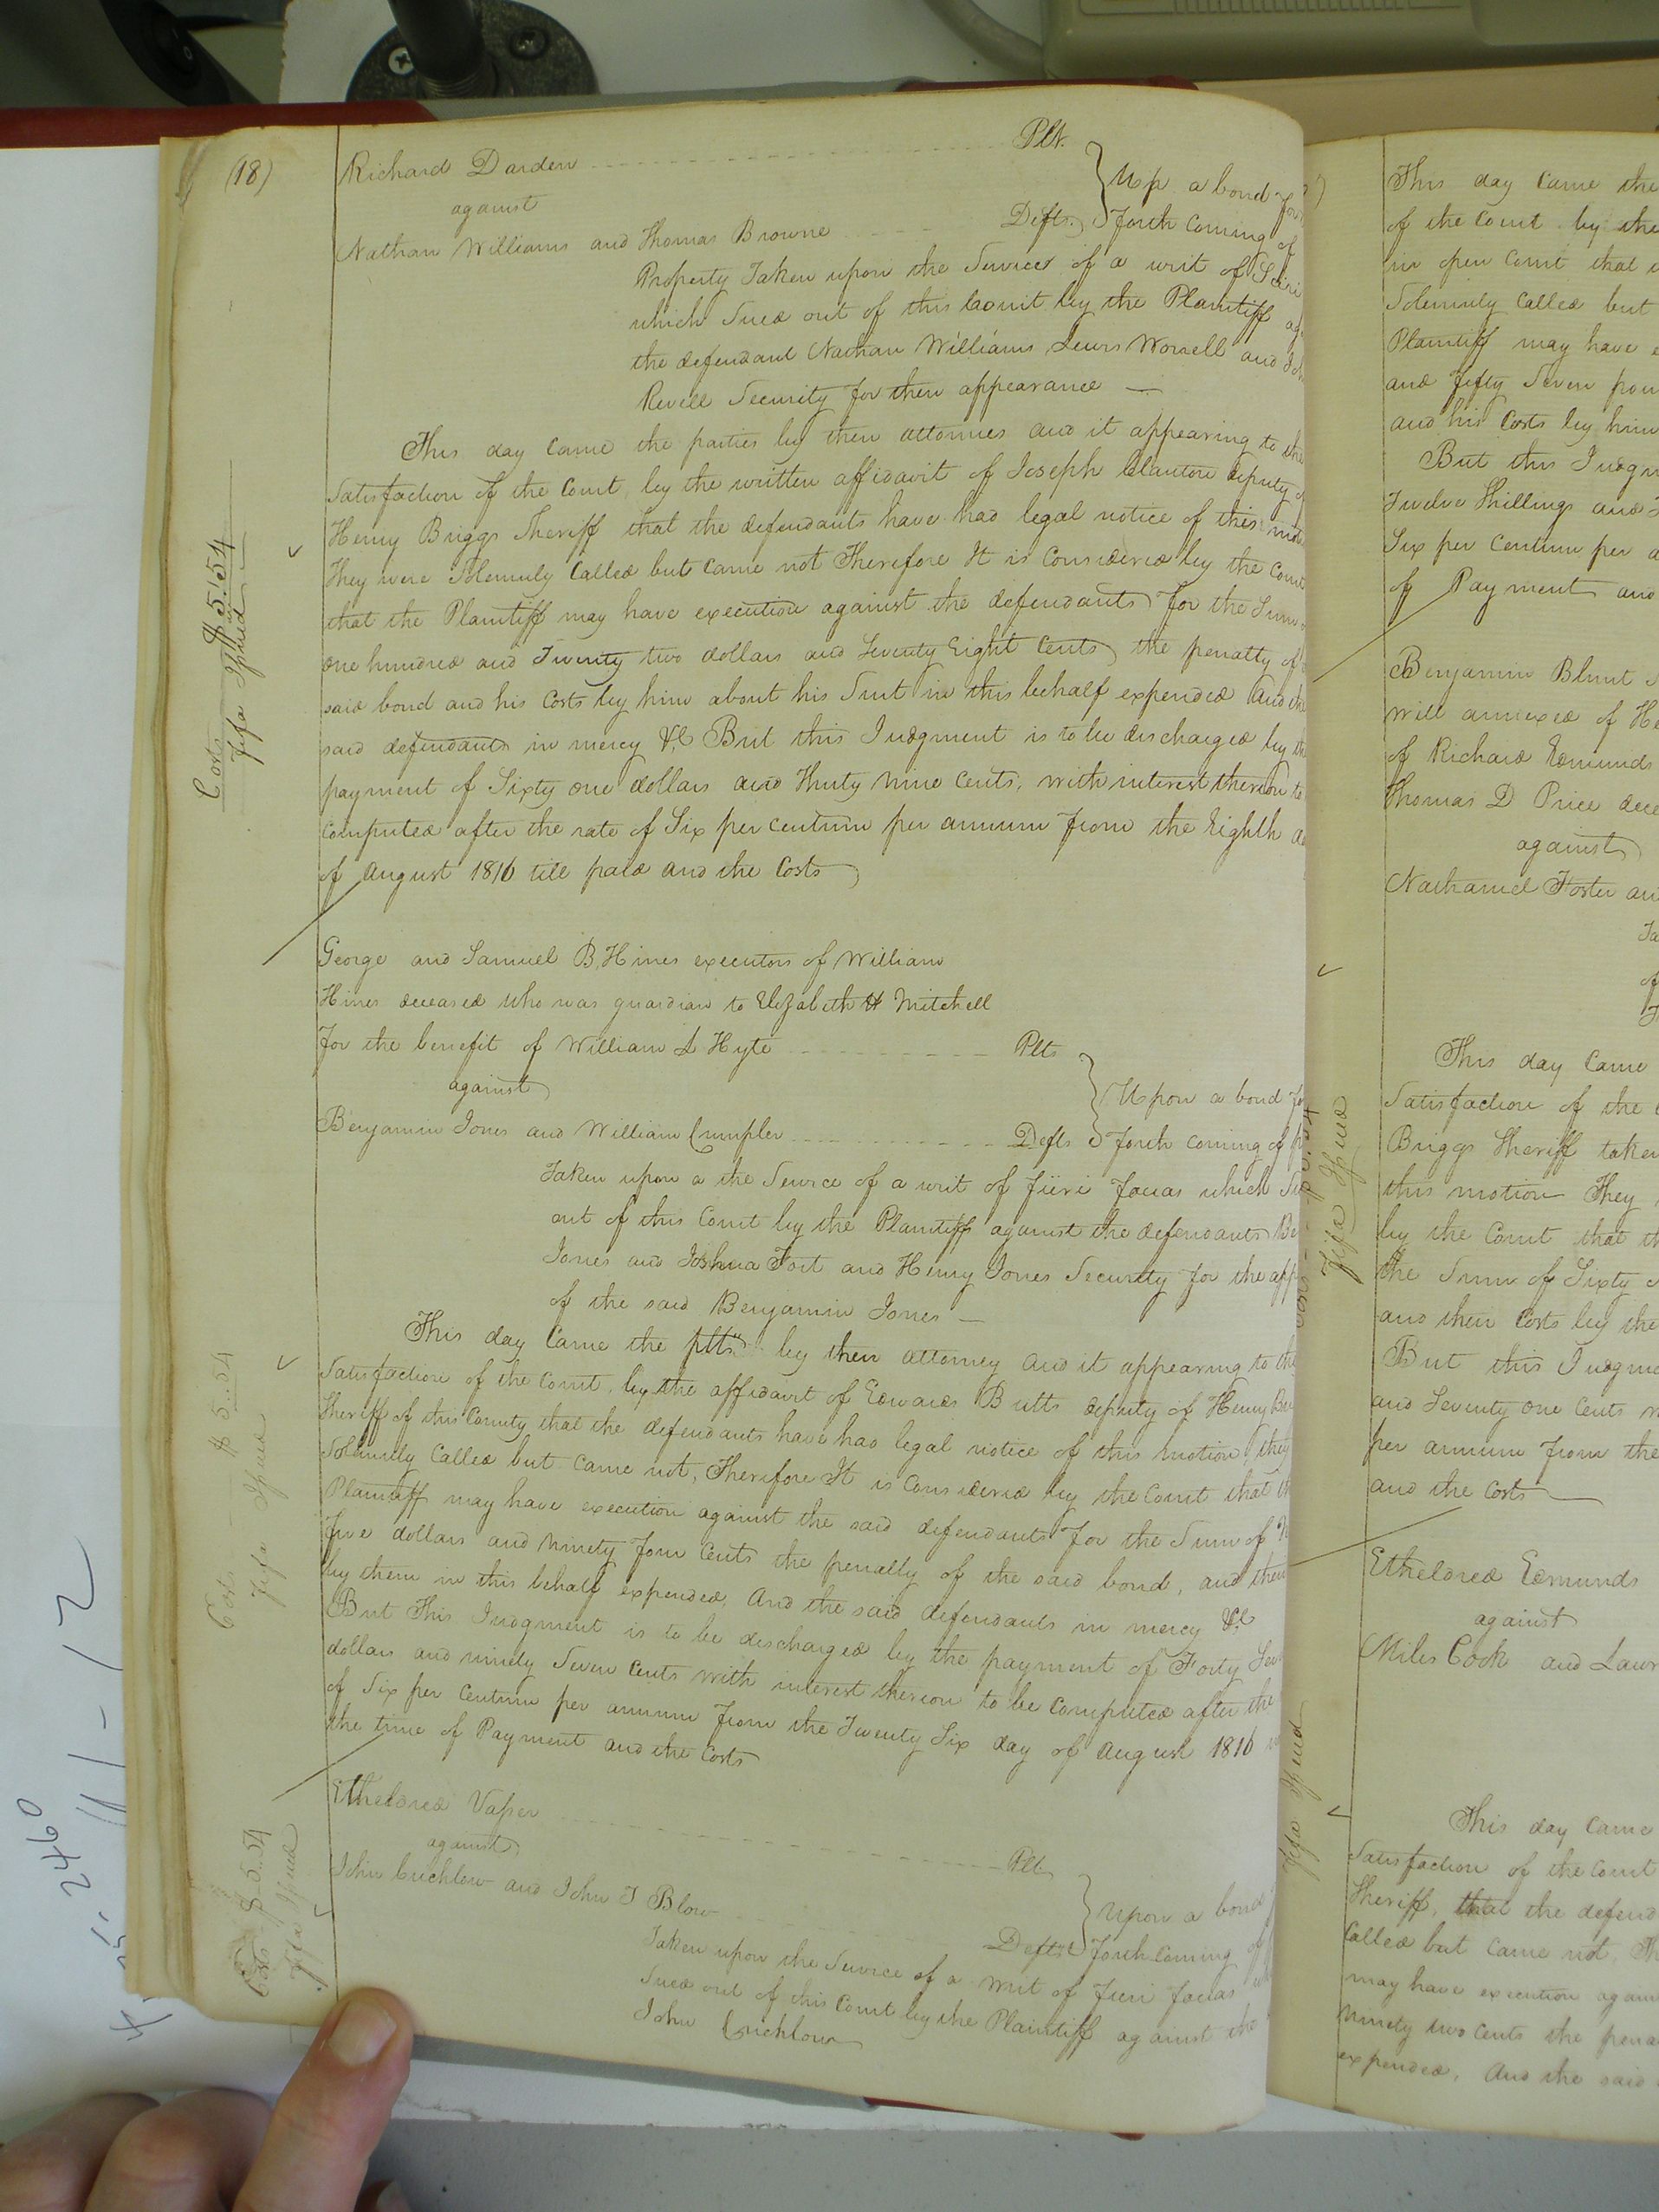 (18)
Richard Darden Plt.
against
Nathan Williams and Thomas Browne Defts.
Up a bond for
forth coming of
Property Taken upon the Service of a writ of
which Sued out of this Court by the Plaintiff
the defendant Nathan Williams Lewis Worrell and
Revell Security for their appearance
This day came the parties by their attornies and it appearing to the
Satisfaction of the Court, by the written affidavit of Joseph Clanton deputy of
Henry Briggs Sheriff that the defendants have had legal notice of this
They were Solemnly Called but Came not Therefore It is Considered by the Court
that the Plaintiff may have execution against the defendants for the Sum
One hundred and Twenty two dollars and Seventy Eight Cents the penalty of
said bond and his Costs by him about his Suit in this behalf expended And the
said defendants in mercy &c But this Judgment is to be discharged by the
payment of Sixty one dollars and Thirty Nine Cents, with interest thereon to
Computed after the rate of Six per centum per annum from the Eighth
of August 1816 till paid and the Costs
Costs $5.54
Fifa Issued
George and Samuel B. Hines executors of William
Hines deceased who was guardian to Elizabeth H Mitchell
for the benefit of William L Hyte Plts
against
Benjamin Jones and William Crumpler Defts
Upon a bond for
forth Coming of
Taken upon a the Service of a writ of fieri facias which
out of this Court by the Plaintiffs against the defendants
Jones and Joshua Fort and Henry Jones Security for the
of the said Benjamin Jones
This day Came the plts by their attorney And it appearing to the
Satisfaction of the Court, by the affidavit of Edwards Butts deputy of Henry
Sheriff of this County that the defendants have had legal notice of this motion they
Solemnly Called but Came not, Therefore It is Considered by the Court that
Plaintiff may have execution against the said defendants for the Sum of
five dollars and Ninety four Cents the penalty of the said bond, and their
by them in this behalf expended, And the said defendants in mercy &c
But This Judgment is to be discharged by the payment of Forty
dollars and ninety Seven Cents with interest thereon to be Computed after the
of Six per Centum per annum from the Twenty Six day of August 1816
the time of Payment and the Costs
Costs $5.54
Fifa Issued
Etheldred Vasser Plt.
against
John Crichlow and John T Blow Defts
Upon a bond
forth Coming of
Taken upon the Service of a writ of fieri facias
Sued out of this Court by the Plaintiff against the
John Crichlow
Costs $5.54
Fifa Issued
This day Came the
of the Court by the
in open Court that
Solemnly Called but
Plaintiff may have
and fifty Seven
and his Costs by him
But this
Twelve Shillings and
Six per Centum per
of Payment and
Benjamin Blunt
will annexed of
of Richard Edmunds
Thomas D Price
against
Nathaniel Foster
of
This day Came
Satisfaction of the
Briggs Sheriff taken
this motion They
by the Court that
the Sum of Sixty
and their Costs by the
But this
and Seventy One Cents
per annum from the
and the Costs
Fifa Issued
Etheldred Edmunds
against
Miles Cook and
This day Came
Satisfaction of the Court
Sheriff, that the
Called but Came not,
may have execution
Ninety two Cents the
expended, And the said
Fifa Issued
2460
11-12